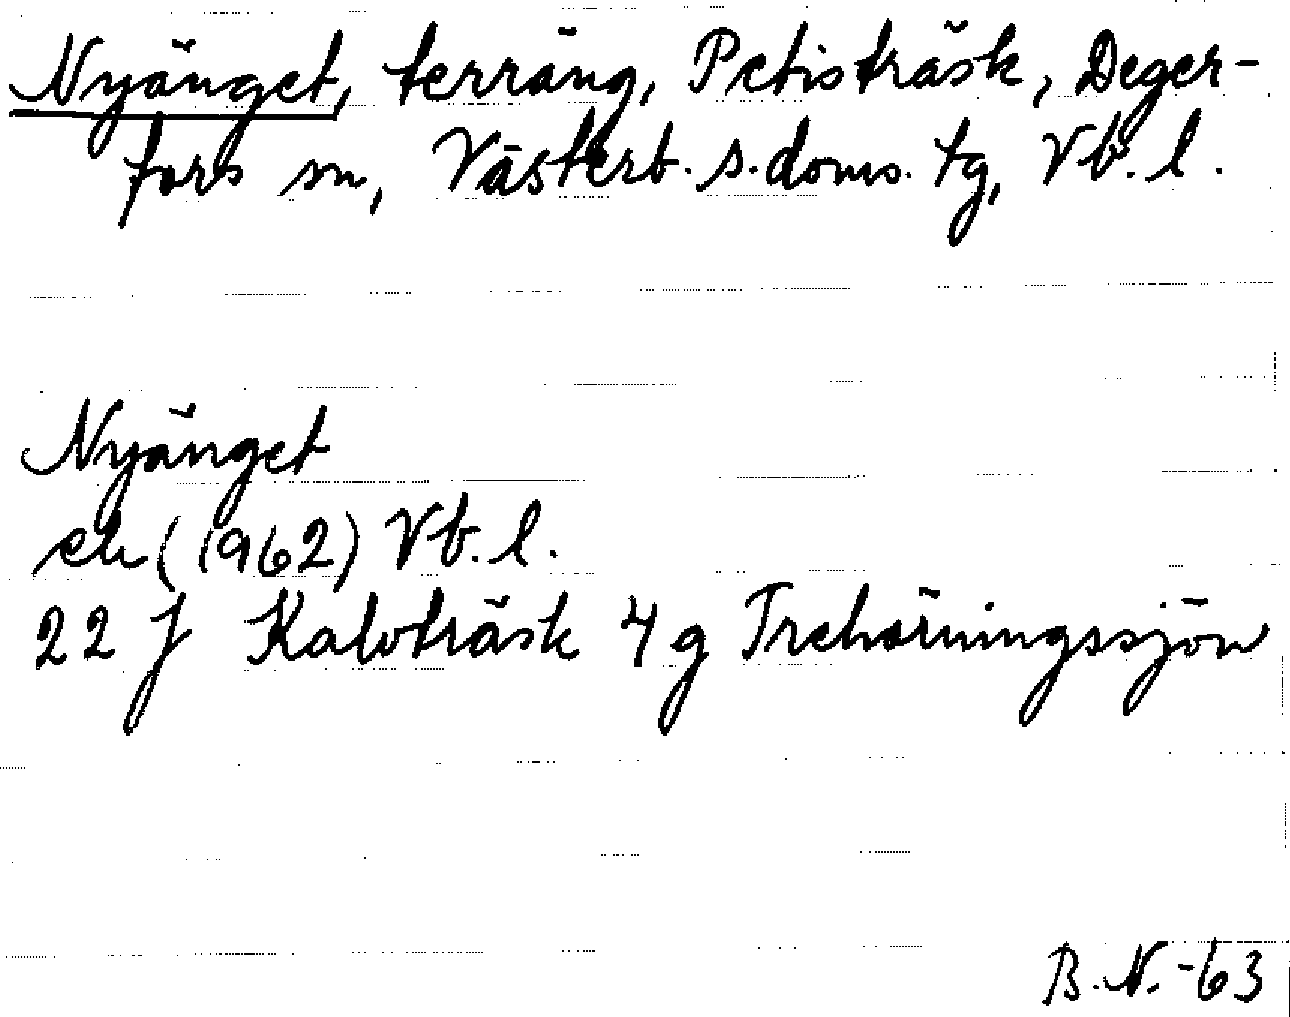 Nyänget, terräng, Petisträsk, Deger-
fors sn, Västerb. s. doms. tg, Vb. l.
Nyänget
ek (1962) Vb. l.
22 J Kalvträsk 4 g Trehörningssjön
B. N. -63